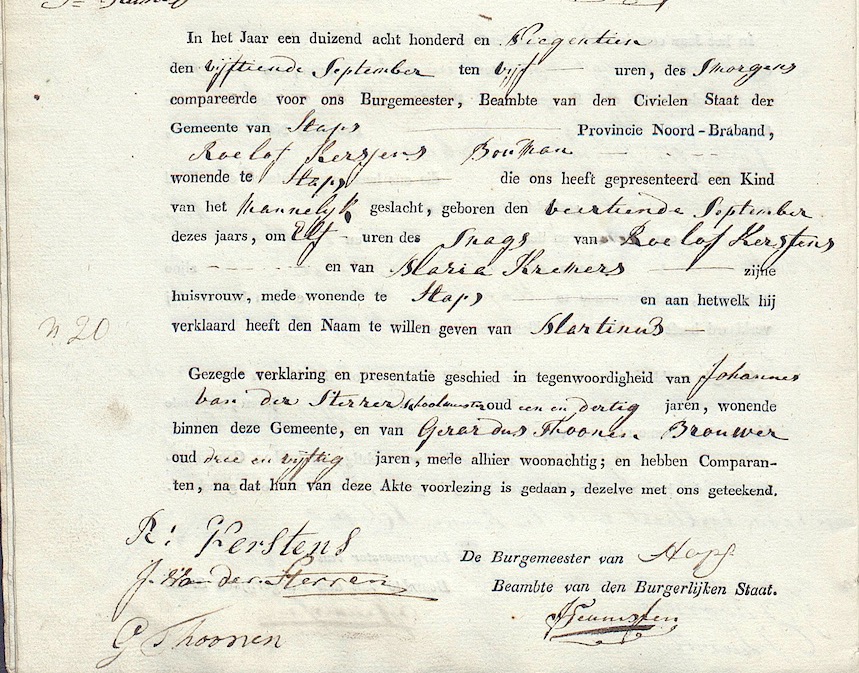 In het Jaar een duizend acht honderd en Negentien
den vijftiende September ten vijf uren, des Smorgens
compareerde voor ons Burgemeester, Beambte van den Civielen Staat der
Gemeente van Staps Provincie Noord-Braband,
Roelof Kerstens Bouman
wonende te Staps die ons heeft gepresenteerd een Kind
van het mannelyk geslacht, geboren den veertiende September
dezes jaars, om Elf uren des Snags van Roelof Kerstens
en van Maria Kremers zijne
huisvrouw, mede wonende te Staps en aan hetwelk hij
n. 20
verklaard heeft den Naam te willen geven van Martinus
Gezegde verklaring en presentatie geschied in tegenwoordigheid van Johannes
van der Sterren schoolmeester oud een en dertig jaren, wonende
binnen deze Gemeente, en van Gerardus Thoonen Brouwer
oud drie en vijftig jaren, mede alhier woonachtig; en hebben Comparan-
ten, na dat hun van deze Akte voorlezing is gedaan, dezelve met ons geteekend.
R: Kerstens
De Burgemeester van Staps
J. van der Sterren
Beambte van den Burgerlijken Staat.
G Thoonen